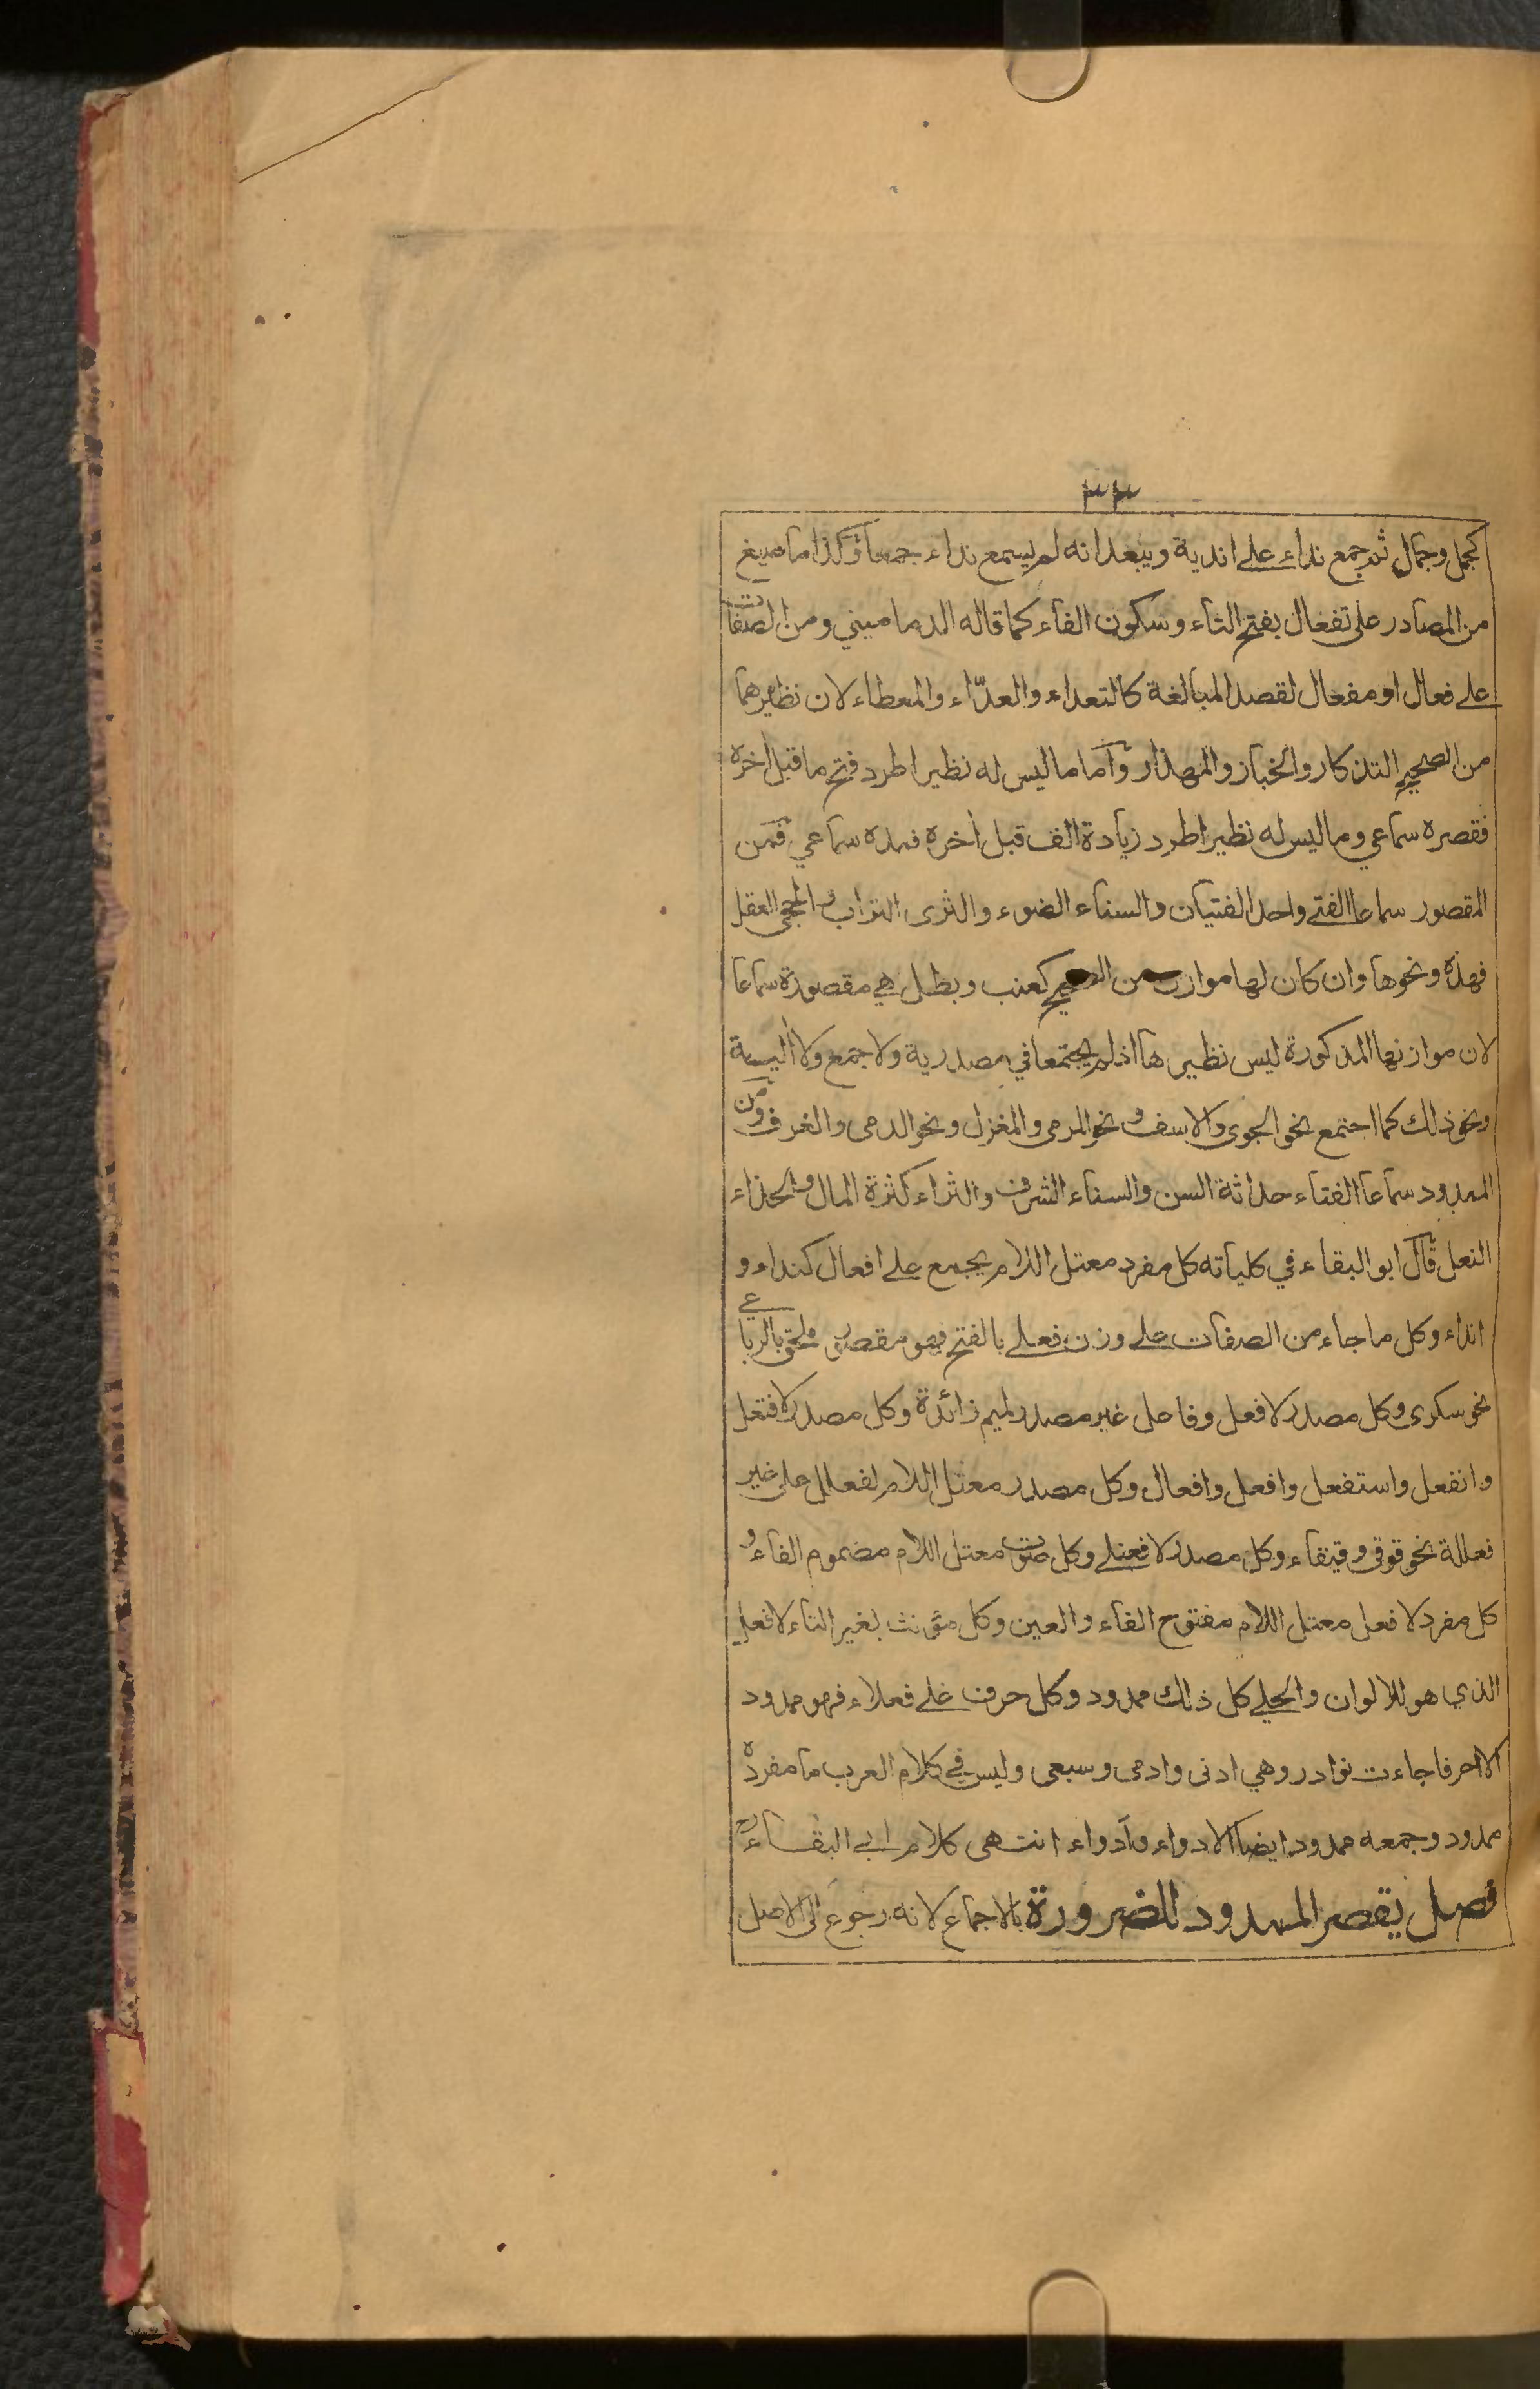 ٣٣
كجمل وجمال ثم جمع نداء على اندية ويبعد انه لم يسمع نداء جمعا وكذا ما صيغ
من المصادر على تفعال بفتح التاء وسكون الفاء كما قاله الدماميني ومن الصفات
على فعال او مفعال لقصد المبالغة كالتعداء والعدّاء والمعطاء لان نظيرهما
من الصحيح التذكار والخباز والمهذار وآما ما ليس له نظير اطرد فتح ما قبل اخره
فقصره سماعي وما ليس له نظير اطرد زيادة الف قبل اخره فمده سماعي فمن
المقصور سماعا الفتى واحد الفتيان والسناء الضوء والثرى التراب والحجى العقل
فهذه ونحوها وان كان لها موازن من الصحيح كعنب وبطل هي مقصورة سماعا
لان موازنها المذكورة ليس نظيرها اذ لم يجتمعا في مصدرية ولا جمع ولا
ونحو ذلك كما اجتمع نحو الجوى والاسف و نحو المرمى والمغزل ونحو الدمى والغرف ومن
الممدود سماعا الفتاء حداثة السن والسناء الشرف والثراء كثرة المال والحذاء
النعل قال ابو البقاء في كلياته كل مفرد معتل اللام يجمع على افعال كنداء و
انداء وكل ما جاء من الصفات على وزن فعلى بالفتح فهو مقصور ملحق بالرباعي
نحو سكرى وكل مصدر لا فعل وفاعل غير مصدر لميم زائدة وكل مصدر لافتعل
وانفعل واستفعل وافعل وافعال وكل مصدر معتل اللام لفعلل على غير
فعللة نحو قوقى وقيقاء وكل مصدر لا فعنلى وكل صوت معتل اللام مضموم الفاء و
كل مفرد لا فعل معتل اللام مفتوح الفاء والعين وكل مؤنث بغير التاء لافعل
الذي هو للالوان والحلى كل ذلك ممدود وكل حرف على فعلاء فهو ممدود
الا احرفا جاءت نوادر وهي ادنى وادمى وسبعى وليس في كلام العرب ما مفرده
ممدود وجمعه ممدود ايضا الا دواء وآدواء انتهى كلام ابي البقاء
فصل يقصر الممدود للضرورة بالاجماع لانه رجوع الى الاصل